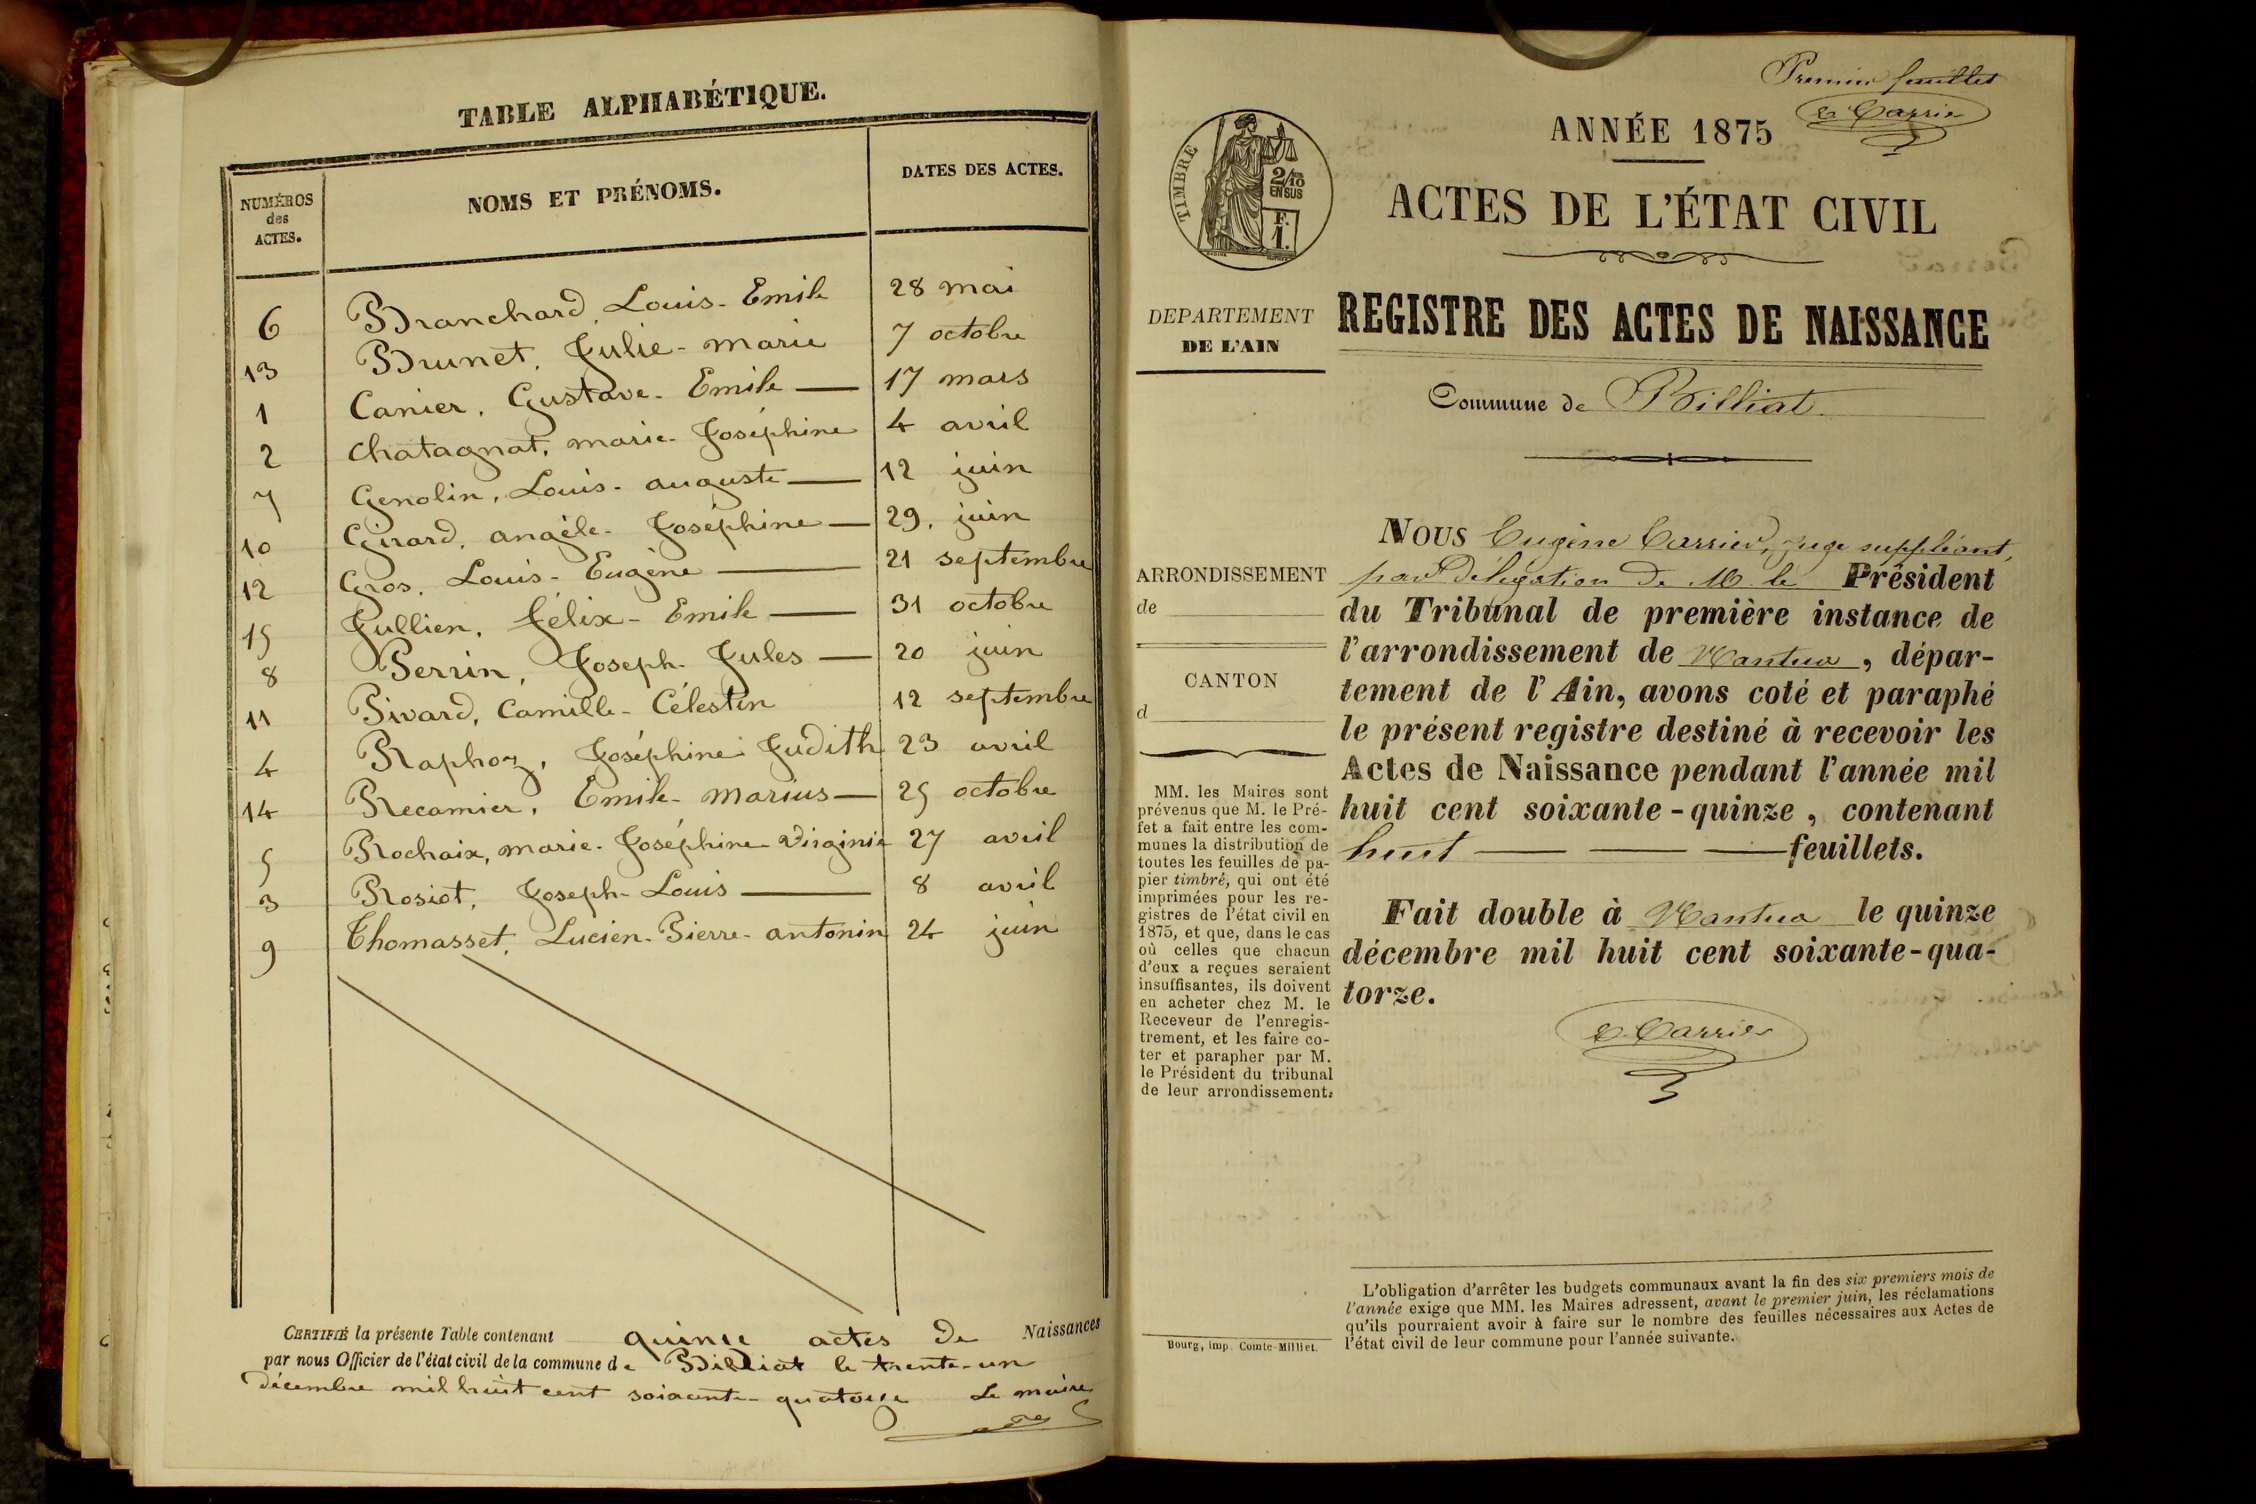 TABLE ALPHABÉTIQUE.
NUMÉROS
des
ACTES.
NOMS ET PRÉNOMS.
DATES DES ACTES.
6 Branchard, Louis-Emile 28 mai
13 Brunet, Julie-marie 7 octobre
1 Canier, Gustave-Emile 17 mars
2 Chatagnat, marie-Joséphine 4 avril
7 Genolin, Louis-auguste 12 juin
10 Girard, angèle-Joséphine 29, juin
12 Gros, Louis-Eugène 21 septembre
15 Jullien, félix-Emile 31 octobre
8 Perrin, Joseph-Jules 20 juin
11 Pivard, Camille-Célestin 12 septembre
4 Raphoz, Joséphine Judith 23 avril
14 Recamier, Emile-marius 25 octobre
5 Rochaix, marie-Joséphine Virginie 27 avril
3 Rosiot, Joseph-Louis 8 avril
9 Thomasset, Lucien-Pierre-antonin 24 juin
CERTIFIÉ la présente Table contenant quinze actes de Naissances
par nous Officier de l'état civil de la commune de Billiat le trente-un
décembre mil huit cent soixante-quatorze Le maire
Premier feuillet
E. Carrier
TIMBRE
2/10
EN SUS
F.
1.
ANNÉE 1875
ACTES DE L'ÉTAT CIVIL
DEPARTEMENT
DE L'AIN
REGISTRE DES ACTES DE NAISSANCE
Commune de Billiat
ARRONDISSEMENT
de
CANTON
d
MM. les Maires sont
prévenus que M. le Pré-
fet a fait entre les com-
munes la distribution de
toutes les feuilles de pa-
pier timbré, qui ont été
imprimées pour les re-
gistres de l'état civil en
1875, et que, dans le cas
où celles que chacun
d'eux a reçues seraient
insuffisantes, ils doivent
en acheter chez M. le
Receveur de l'enregis-
trement, et les faire co-
ter et parapher par M.
le Président du tribunal
de leur arrondissement.
Bourg, imp. Comte-Milliet.
NOUS Eugène Carrier, juge suppléant,
par délégation de M. le Président
du Tribunal de première instance de
l'arrondissement de Nantua, dépar-
tement de l'Ain, avons coté et paraphé
le présent registre destiné à recevoir les
Actes de Naissance pendant l'année mil
huit cent soixante-quinze, contenant
huit feuillets.
Fait double à Nantua le quinze
décembre mil huit cent soixante-qua-
torze.
E. Carrier
L'obligation d'arrêter les budgets communaux avant la fin des six premiers mois de
l'année exige que MM. les Maires adressent, avant le premier juin, les réclamations
qu'ils pourraient avoir à faire sur le nombre des feuilles nécessaires aux Actes de
l'état civil de leur commune pour l'année suivante.